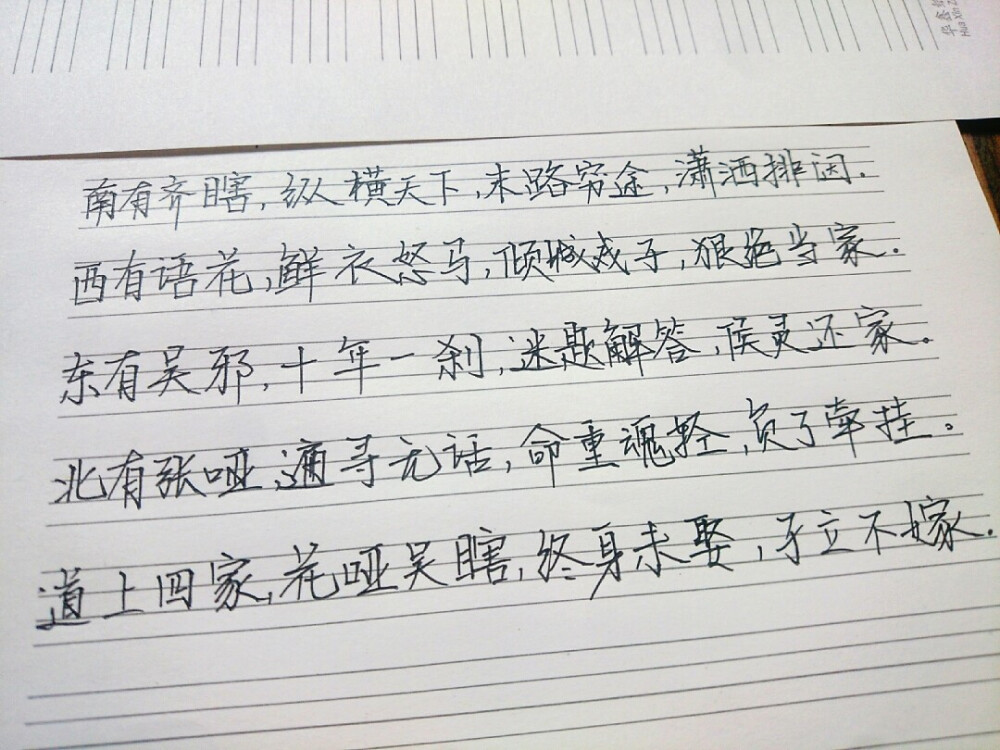 华鑫
Hua Xin
南有齐瞎,纵横天下,末路穷途,潇洒排闼.
西有语花,鲜衣怒马,倾城戏子,狠绝当家.
东有吴邪,十年一刹,迷题解答,侯灵还家。
北有张哑,遍寻无话,命重魂轻,负了牵挂。
道上四家,花哑吴瞎,终身未娶,孑立不嫁.